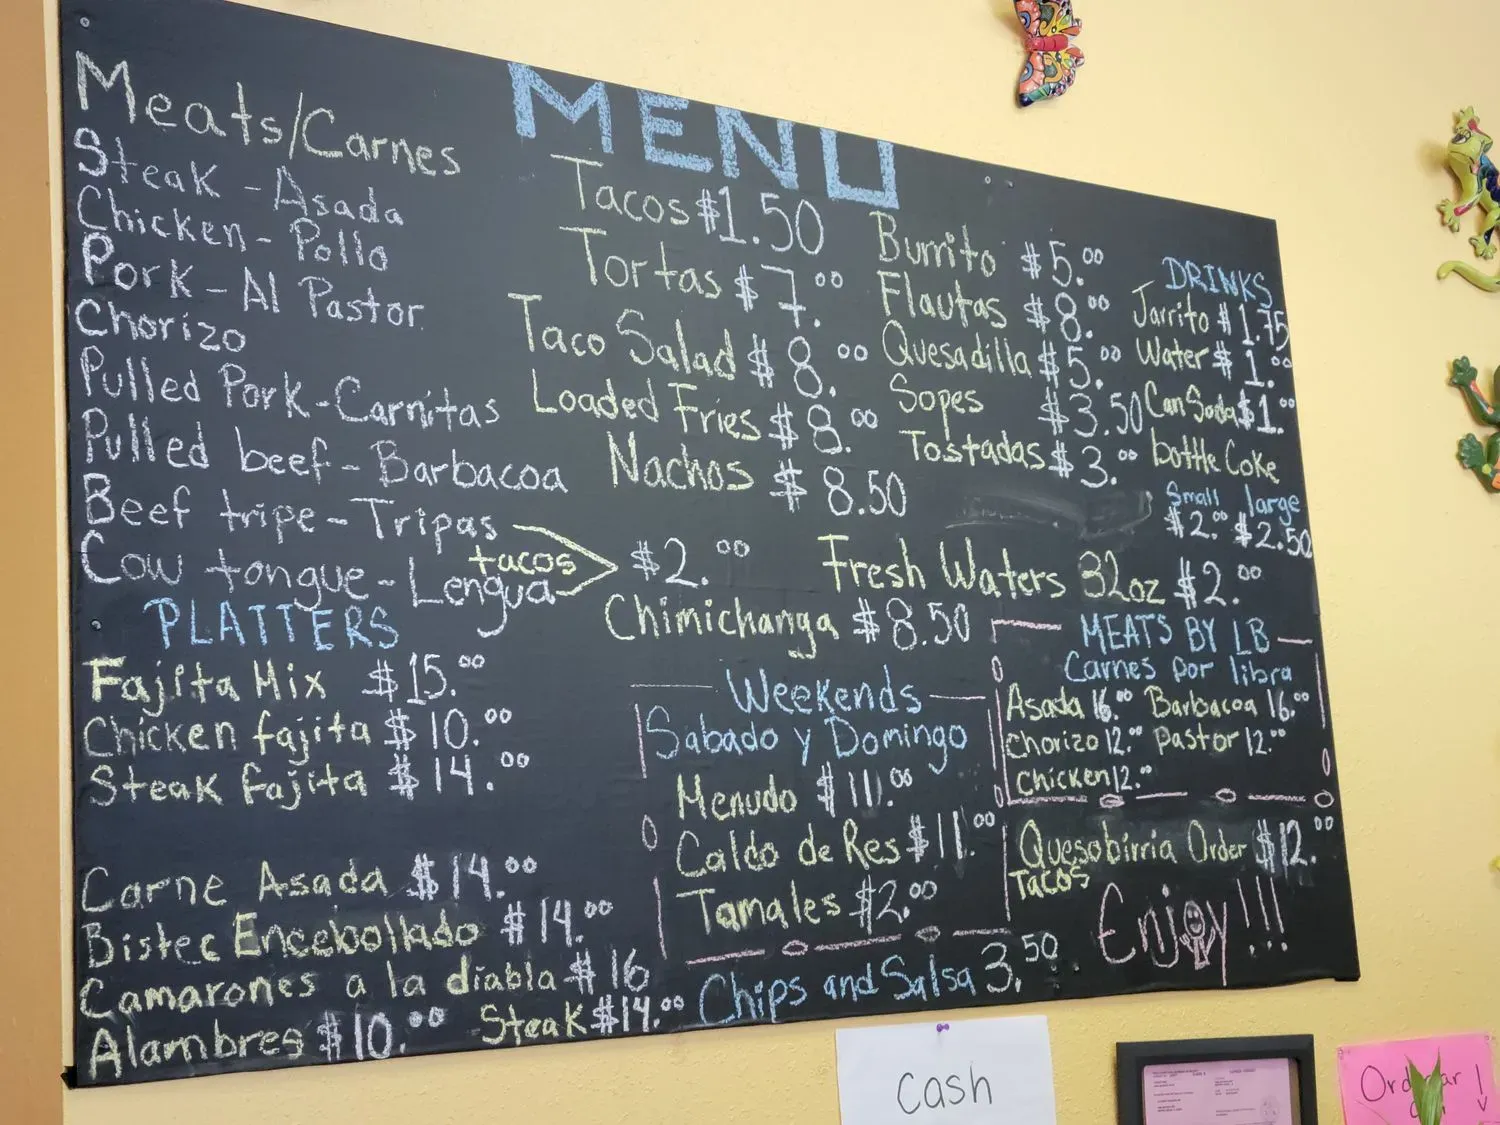 MENU
Meats/Carnes
Steak - Asada
Chicken - Pollo
Pork - Al Pastor
Chorizo
Pulled Pork - Carnitas
Pulled beef - Barbacoa
Beef tripe - Tripas
Cow tongue - Lengua
tacos $2.00
PLATTERS
Fajita Mix $15.00
Chicken fajita $10.00
Steak fajita $14.00
Carne Asada $14.00
Bistec Encebollado $14.00
Camarones a la diabla $16
Alambres $10.00 Steak $14.00
Tacos $1.50
Tortas $7.00
Taco Salad $8.00
Loaded Fries $8.00
Nachos $8.50
Chimichanga $8.50
Burrito $5.00
Flautas $8.00
Quesadilla $5.00
Sopes $3.50
Tostadas $3.00
DRINKS
Jarrito $1.75
Water $1.00
Can Soda $1.00
bottle Coke
Small large
$2.00 $2.50
Fresh Waters 32oz $2.00
Weekends
Sabado y Domingo
Menudo $11.00
Caldo de Res $11.00
Tamales $2.00
Chips and Salsa 3.50
MEATS BY LB
Carnes por libra
Asada 16.00 Barbacoa 16.00
Chorizo 12.00 Pastor 12.00
Chicken 12.00
Quesobirria Order $12.00
Tacos
Enjoy!!!
cash